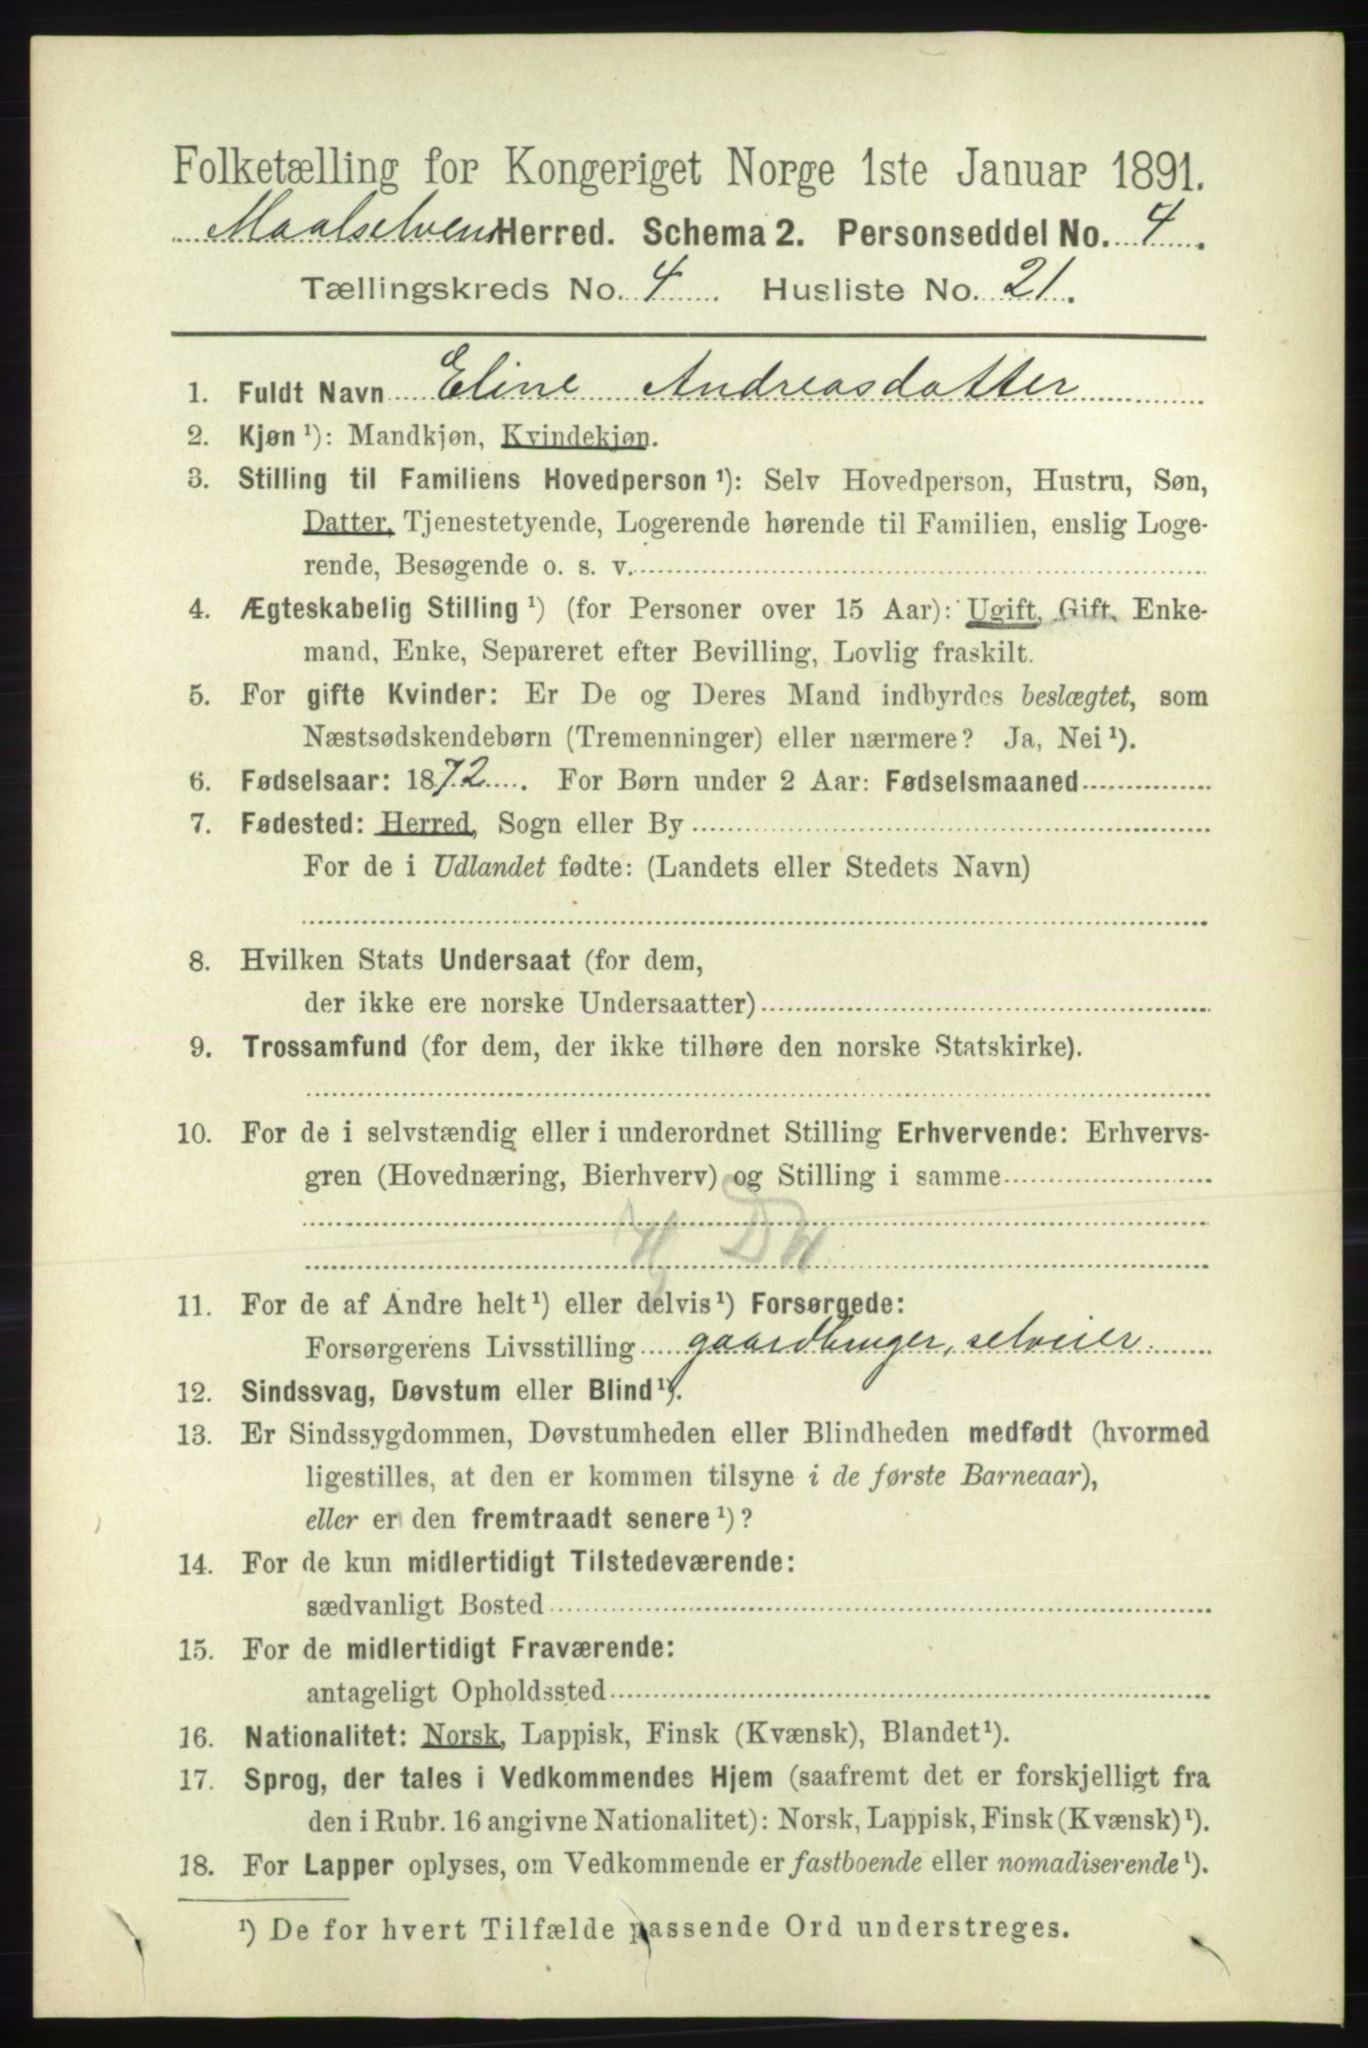 Folketælling for Kongeriget Norge 1ste Januar 1891.
Maalselvens Herred. Schema 2. Personseddel No. 4.
Tællingskreds No. 4. Husliste No. 21.
1. Fuldt Navn Eline Andreasdatter
2. Kjøn ¹): Mandkjøn, Kvindekjøn.
3. Stilling til Familiens Hovedperson ¹): Selv Hovedperson, Hustru, Søn,
Datter, Tjenestetyende, Logerende hørende til Familien, enslig Loge-
rende, Besøgende o. s. v.
4. Ægteskabelig Stilling ¹) (for Personer over 15 Aar): Ugift, Gift, Enke-
mand, Enke, Separeret efter Bevilling, Lovlig fraskilt.
5. For gifte Kvinder: Er De og Deres Mand indbyrdes beslægtet, som
Næstsødskendebørn (Tremenninger) eller nærmere? Ja, Nei ¹).
6. Fødselsaar: 1872. For Børn under 2 Aar: Fødselsmaaned
7. Fødested: Herred, Sogn eller By
For de i Udlandet fødte: (Landets eller Stedets Navn)
8. Hvilken Stats Undersaat (for dem,
der ikke ere norske Undersaatter)
9. Trossamfund (for dem, der ikke tilhøre den norske Statskirke).
10. For de i selvstændig eller i underordnet Stilling Erhvervende: Erhvervs-
gren (Hovednæring, Bierhverv) og Stilling i samme
11. For de af Andre helt ¹) eller delvis ¹) Forsørgede:
Forsørgerens Livsstilling gaardbruger, selveier.
12. Sindssvag, Døvstum eller Blind ¹).
13. Er Sindssygdommen, Døvstumheden eller Blindheden medfødt (hvormed
ligestilles, at den er kommen tilsyne i de første Barneaar),
eller er den fremtraadt senere ¹)?
14. For de kun midlertidigt Tilstedeværende:
sædvanligt Bosted
15. For de midlertidigt Fraværende:
antageligt Opholdssted
16. Nationalitet: Norsk, Lappisk, Finsk (Kvænsk), Blandet ¹).
17. Sprog, der tales i Vedkommendes Hjem (saafremt det er forskjelligt fra
den i Rubr. 16 angivne Nationalitet): Norsk, Lappisk, Finsk (Kvænsk) ¹).
18. For Lapper oplyses, om Vedkommende er fastboende eller nomadiserende ¹).
¹) De for hvert Tilfælde passende Ord understreges.